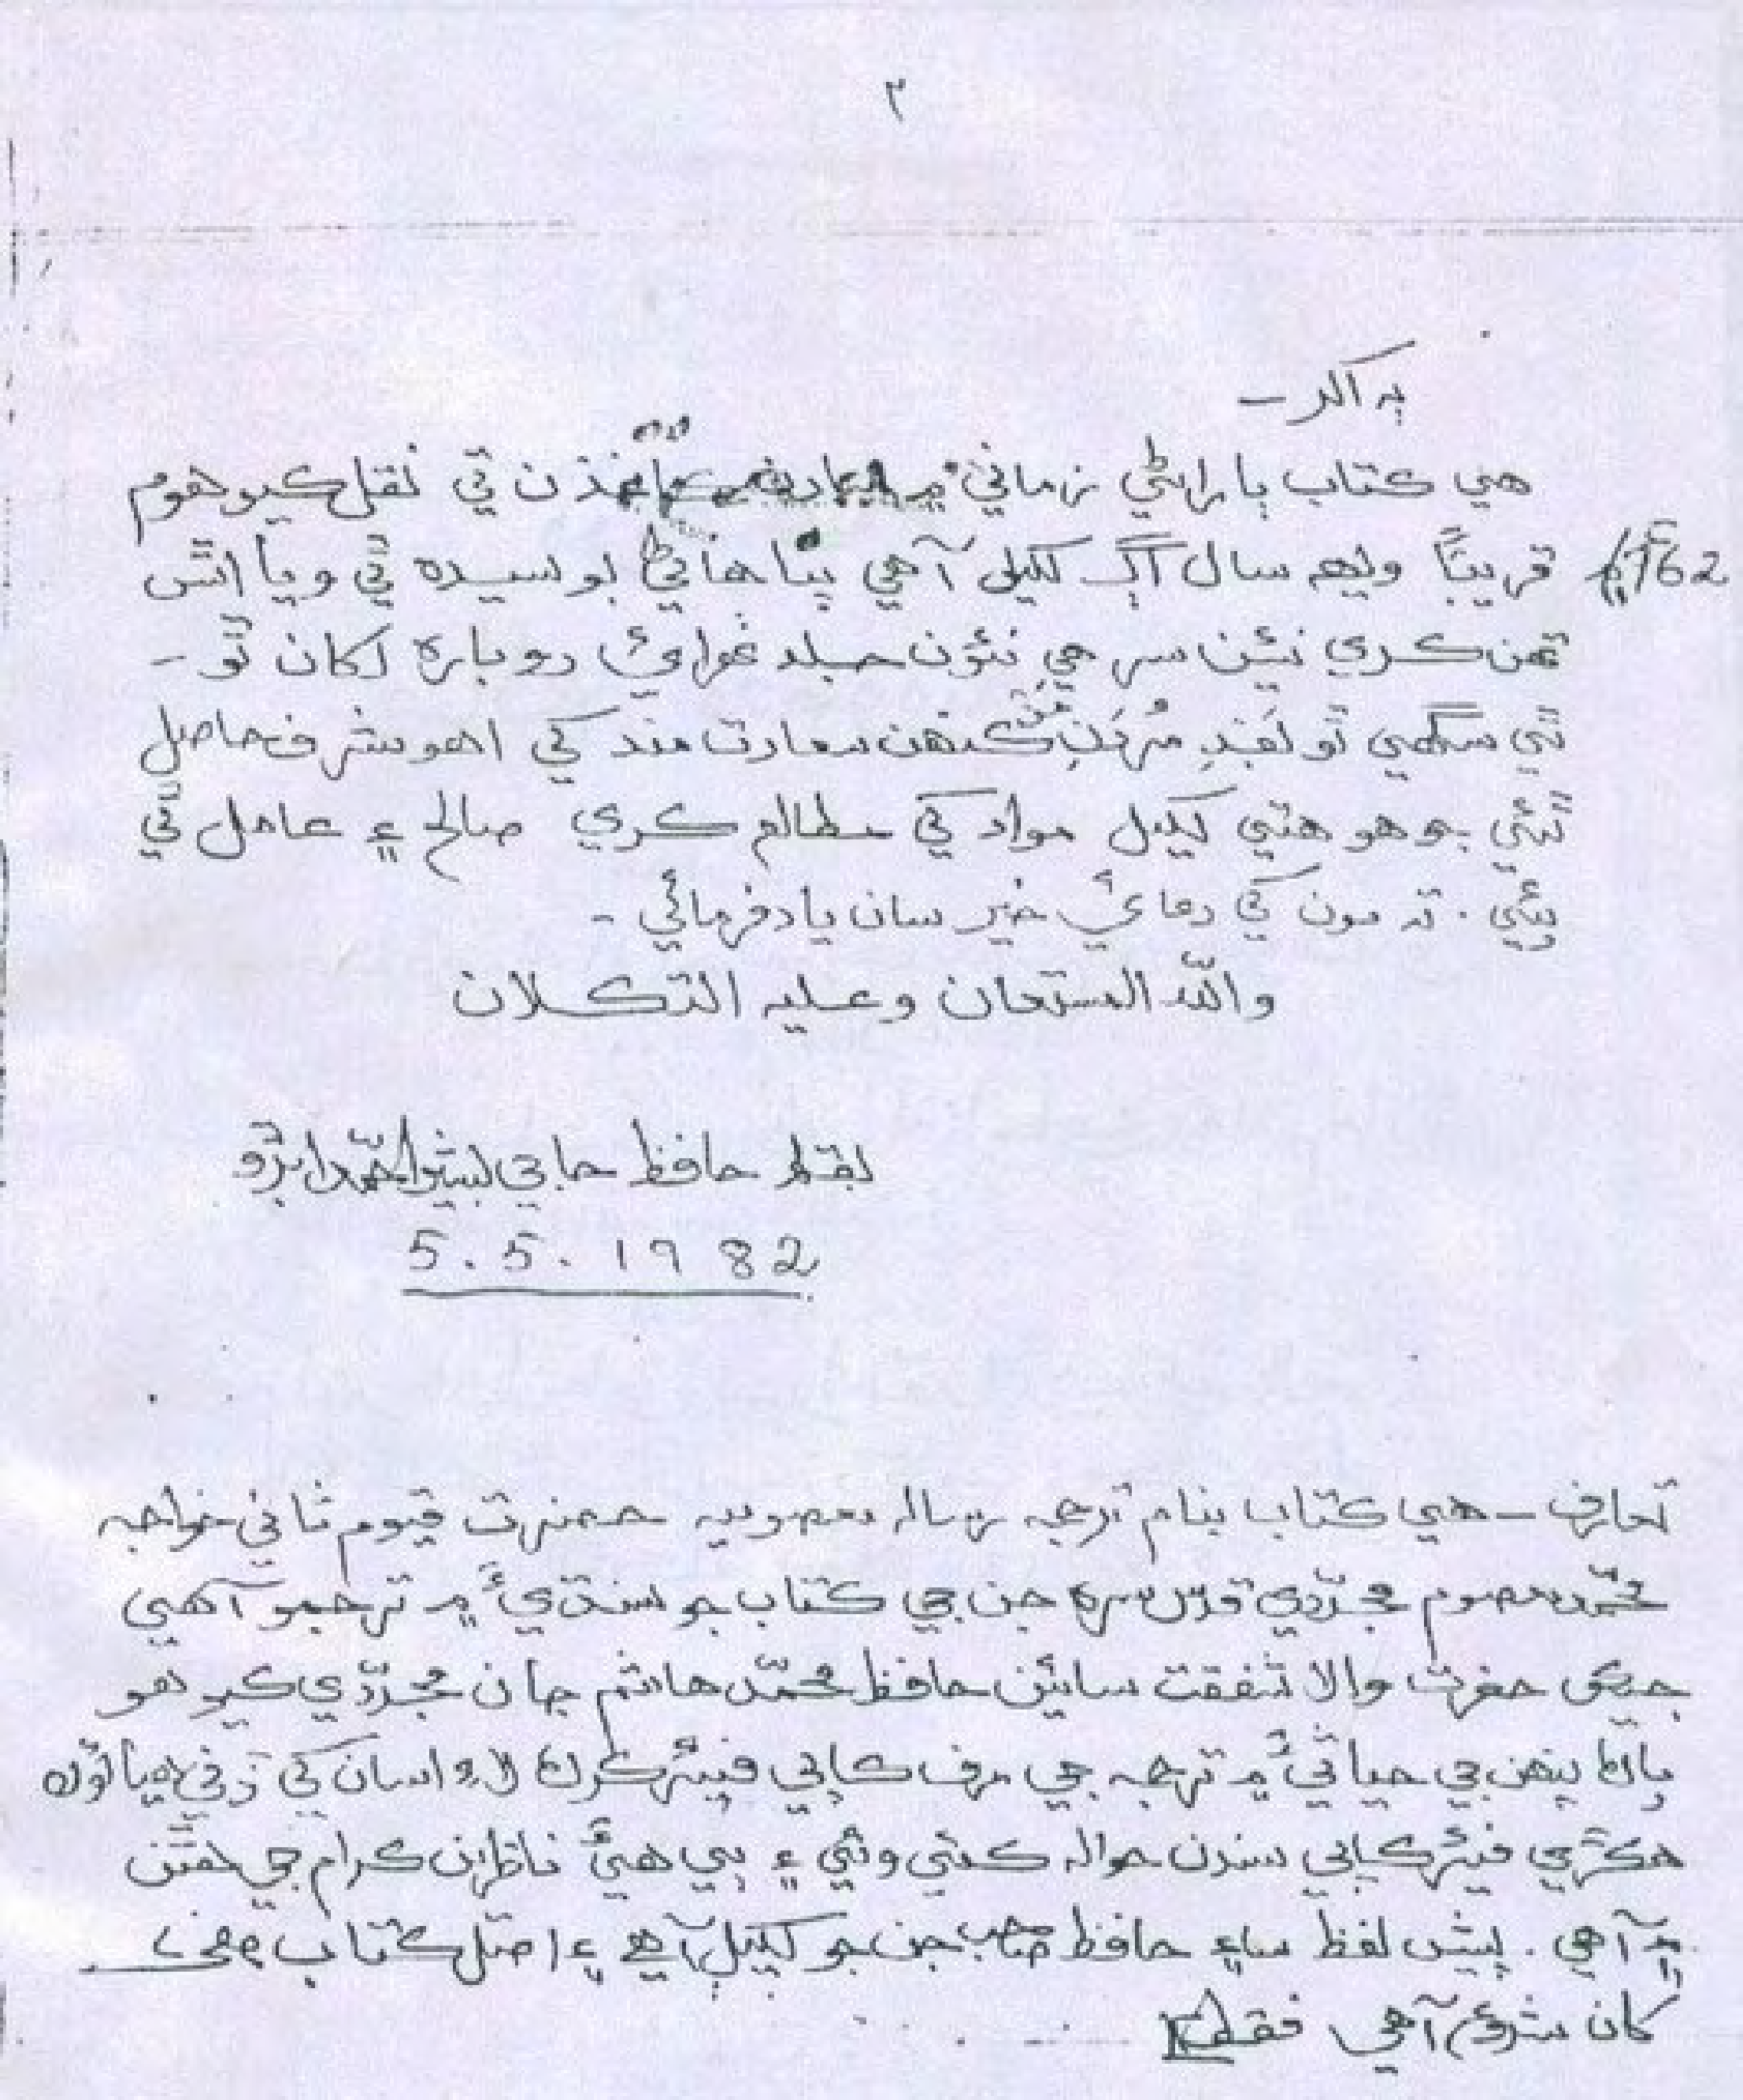 ٣
ٻه اکر ـ
هي ڪتاب ٻاراڻي زماني ۾ ڪاغذن تي نقل ڪيو هوم
1962ع تقريباً ويهه سال اڳ لکيل آهي پنا هاڻي بوسيده ٿي ويا اٿس
تنهن ڪري نئين سر جي نئون جلد ٻڌرائي دوباره لکان ٿو ـ
ٿي سگهي ٿو بعد مرڻ ڪنهن سعادت مند کي اهو شرف حاصل
ٿئي جو هو هتي لکيل مواد کي مطالع ڪري صالح ۽ عامل ٿي
پئي . ته مون کي دعاءِ خير سان ياد فرمائي ـ
والله المستعان وعليه التكلان
بقلم حافظ حاجي بشير احمد ابڙو
5 . 5 . ١٩ 82
تعارف ــ هي ڪتاب بنام ترجمه رساله معصوميه حضرت قيوم ثاني خواجه
محمّد معصوم مجدّدي قدس سره جن جي ڪتاب جو سنڌيءَ ۾ ترجمو آهي
جيڪو حضرت والا شفقت سائين حافظ محمّد هاشم جان مجدّدي ڪيو هو
پاڻ پنهنجي حياتيءَ ۾ ترجمه جي رف ڪاپي فيئر ڪرڻ لاءِ اسان کي ڏني هيائون
هڪڙي فيئر ڪاپي سندن حواله ڪئي وئي ۽ ٻي هيءَ ناظرين ڪرام جي هٿن
۾ آهي . پيش لفظ سڀ حافظ صاحب جن جو لکيل آهي ۽ اصل ڪتاب صفحي
کان شروع آهي فقط